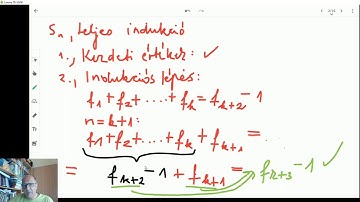 5., Teljes indukció
1., Kezdeti értékek: ✓
2., Indukciós lépés:
f₁ + f₂ + .... + fₖ = fₖ₊₂ - 1
n = k+1:
f₁ + f₂ + .... + fₖ + fₖ₊₁ = ...
= fₖ₊₂ - 1 + fₖ₊₁ = fₖ₊₃ - 1 ✓